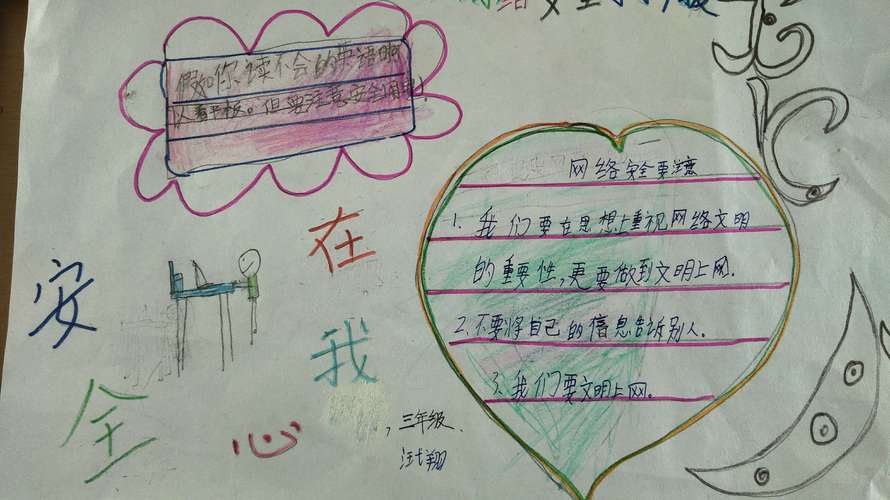 网络安全手抄报
假如你读不会的英语啊
以看平板。但要注意安全用电!
网络安全要注意
1. 我们要在思想上重视网络文明
的重要性,更要做到文明上网.
2.不要将自己的信息告诉别人.
3.我们要文明上网。
安
全
在
我
心
三年级